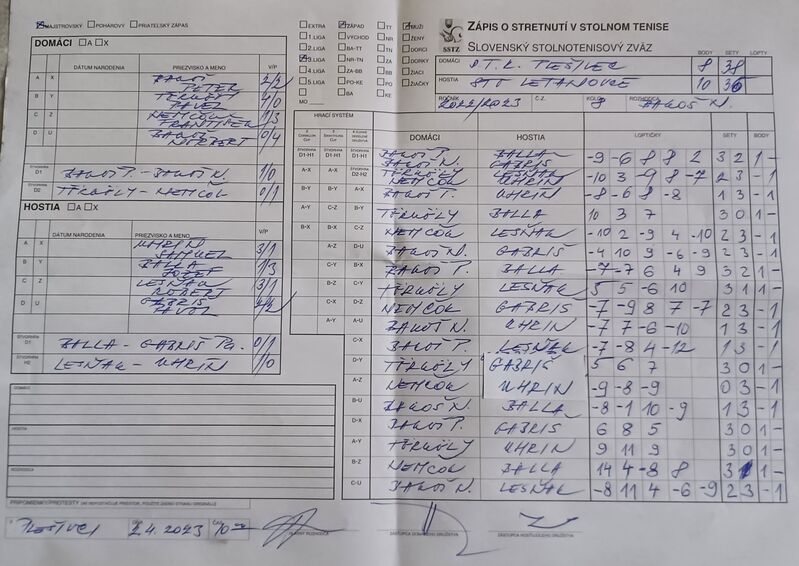 MAJSTROVSKÝ POHÁROVÝ PRIATEĽSKÝ ZÁPAS
EXTRA ZÁPAD TT MUŽI
1.LIGA VÝCHOD NR ŽENY
2.LIGA BA-TT TN DORCI
3.LIGA NR-TN ZA DORKY
4.LIGA ZA-BB BB ŽIACI
5.LIGA PO-KE PO ŽIAČKY
BA KE
MO
SSTZ
ZÁPIS O STRETNUTÍ V STOLNOM TENISE
SLOVENSKÝ STOLNOTENISOVÝ ZVÄZ
BODY SETY LOPTY
DOMÁCI O.T.K. PLEŠIVEC 8 38
HOSTIA STO LETANOVCE 10 36
ROČNÍK 2022/2023 Č.Z. KOLO ROZHODCA BAKOŠ N.
DOMÁCI A X
DÁTUM NARODENIA PRIEZVISKO A MENO V/P
A X BAKOŠ PETER 2/2
B Y TÖRKÖLY PAVEL 4/0
C Z NEMČOK FRANTIŠEK 1/3
D U BAKOŠ NORBERT 0/4
ŠTVORHRA D1 BAKOŠ P. - BAKOŠ N. 1/0
ŠTVORHRA D2 TÖRKÖLY - NEMČOK 0/1
HOSTIA A X
DÁTUM NARODENIA PRIEZVISKO A MENO V/P
A X UHRIN SAMUEL 3/1
B Y BALLA JOZEF 1/3
C Z LESŇAK RÓBERT 3/1
D U GABRIŠ PAVOL
ŠTVORHRA BALLA - GABRIŠ PA. 0/1
ŠTVORHRA H2 LESŇAK - UHRÍN 1/0
HRACÍ SYSTÉM
DOMÁCI HOSTIA LOPTIČKY SETY BODY
D1-H1 D1-H1 D1-H1 BAKOŠ P. BAKOŠ N. BALLA GABRIŠ -9 -6 8 8 2 3 2 1 -
A-X A-X D2-H2 TÖRKÖLY NEMČOK LESŇAK UHRIN -10 3 -9 8 -7 2 3 - 1
B-Y B-Y A-X BAKOŠ P. UHRIN -8 -6 8 -8 1 3 - 1
A-Y C-Z B-Y TÖRKÖLY BALLA 10 3 7 3 0 1 -
B-X B-X C-Z NEMČOK LESŇAK -10 2 -9 4 -10 2 3 - 1
A-Z D-U BAKOŠ N. GABRIŠ -4 10 9 -6 -9 2 3 - 1
C-Y B-X BAKOŠ P. BALLA -7 -7 6 4 9 3 2 1 -
B-Z C-Y TÖRKÖLY LESŇAK 5 5 -6 10 3 1 1 -
C-X D-Z NEMČOK GABRIŠ -7 -9 8 7 -7 2 3 - 1
A-Y A-U BAKOŠ N. UHRIN -7 7 -6 -10 1 3 - 1
C-X BAKOŠ P. LESŇAK -7 -8 4 -12 1 3 - 1
D-Y TÖRKÖLY GABRIŠ 5 6 7 3 0 1 -
A-Z NEMČOK UHRIN -9 -8 -9 0 3 - 1
B-U BAKOŠ N. BALLA -8 -1 10 -9 1 3 - 1
D-X BAKOŠ P. GABRIŠ 6 8 5 3 0 1 -
A-Y TÖRKÖLY UHRIN 9 11 9 3 0 1 -
B-Z NEMČOK BALLA 14 4 -8 8 3 1 1 -
C-U BAKOŠ N. LESŇAK -8 11 4 -6 -9 2 3 - 1
DOMÁCI
HOSTIA
ROZHODCA
PRIPOMIENKY/PROTESTY
V PLEŠIVCI 2.4.2023 10
HLAVNÝ ROZHODCA ZÁSTUPCA DOMÁCEHO DRUŽSTVA ZÁSTUPCA HOSŤUJÚCEHO DRUŽSTVA